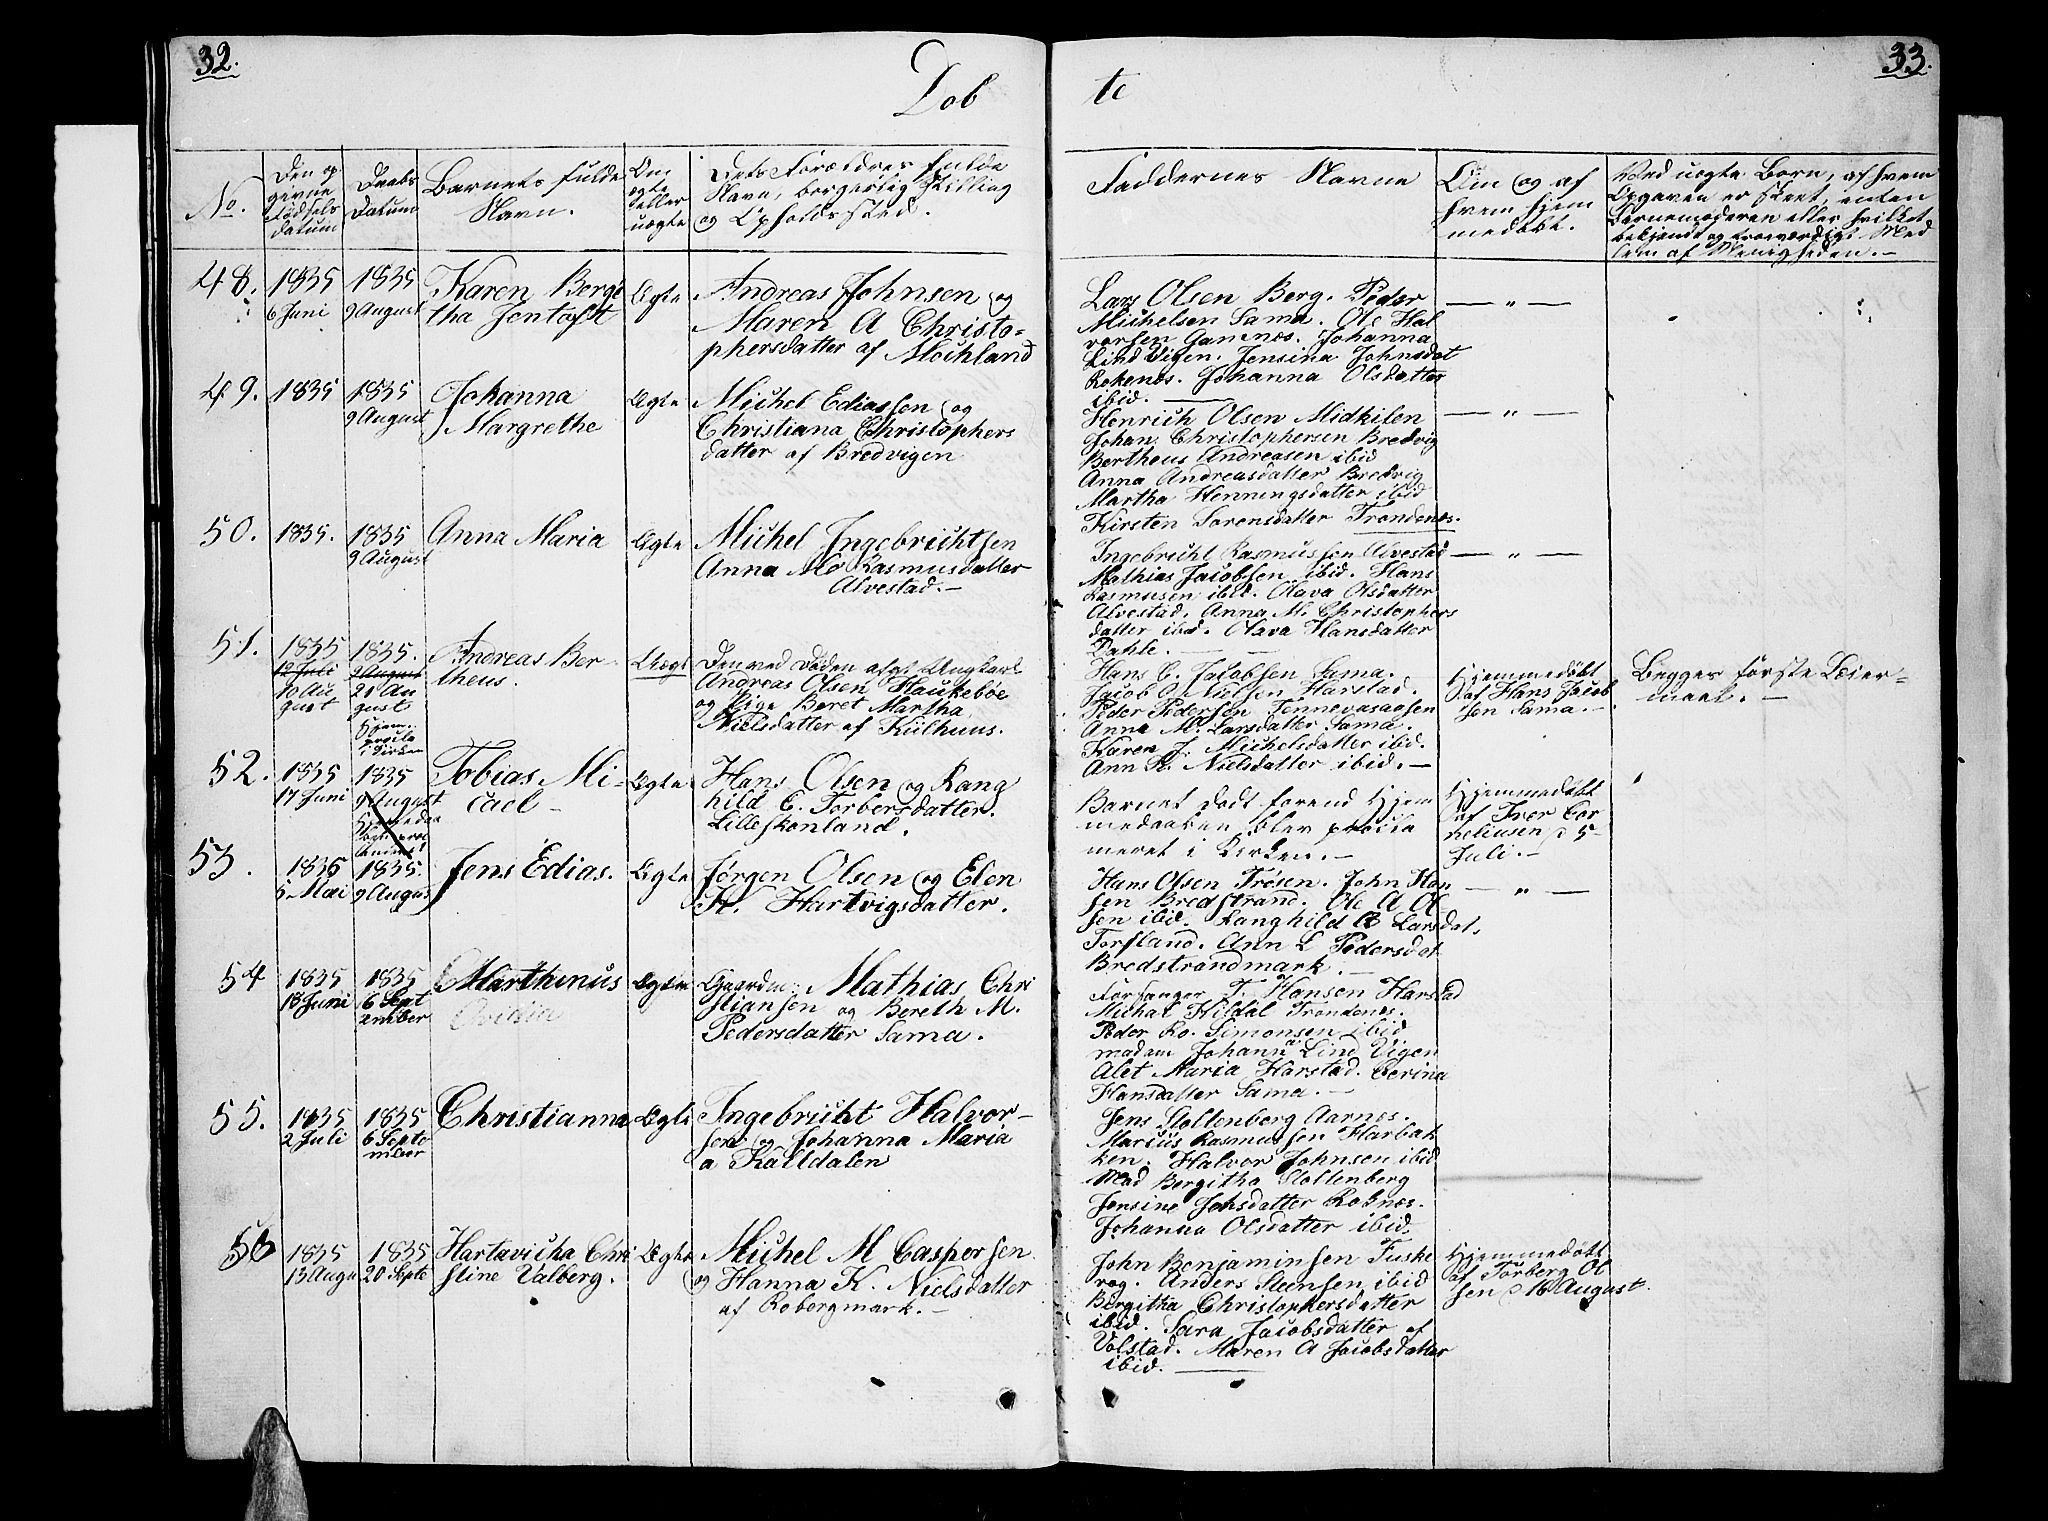 32.
33.
Døb
te
No.
Den op
givne
Fødsels
datum
Daabs
Datum
Barnets fulde
Navn.
Om
ægte
eller
uægte
Dets Forældres fulde
Navn, borgerlig Stilling
og Opholdssted.
Faddernes Navne
Om og af
hvem hjem
medøbt.
Ved uægte Børn, af hvem
Opgaven er skeet, enten
Barnemoderen eller hvilket
bekjendt og troværdigt Med
lem af Menigheden.-
48.
1835
6 Juni
1835
9 August
Karen Bergi
tha Jentoft
Ægte
Andreas Johnsen og
Maren A Christo-
phersdatter af Mochland
Lars Olsen Berg. Peder
Michelsen Sama. Ole Hal
vorsen Gansnæs. Johanna
Lind Vigen. Jensina Johnsdat
Rokenæs. Johanna Olsdatter
ibid.
— " —
49.
1835
1835
9 August
Johanna
Margrethe
Ægte
Michel Ediassen og
Christiana Christophers
datter af Bredvigen
Henrich Olsen Midkilen
Johan Christophersen Bredvig
Bertheus Andreasen ibid
Anna Andreasdatter Bredvig
Martha Henningsdatter ibid
Kirsten Sørensdatter Trondenæs.
— " —
50.
1835.
1835
9 August
Anna Maria
Ægte
Michel Ingebrichtsen
Anna Mo Rasmusdatter
Alvestad.-
Ingebricht Rasmussen Alvestad
Mathias Jacobsen ibid. Hans
Rasmusen ibid. Olava Olsdatter
Alvestad. Anna M. Christophers
datter ibid. Olava Hansdatter
Dahle.
— " —
51.
1835
12 Juli
10 Au
gust
1835.
9 August
21 Au
gust
Andreas Ber-
theus.
Uægt
Den ved Døden afgt Ungkarl
Andreas Olsen Haukebøe
og Pige Beret Martha
Nielsdatter af Kiilhuus.
Hans C. Jacobsen Sama.
Jacob O Nielsen Harstad.
Peder Pedersen Tennevasaasen
Anna M. Larsdatter Sama.
Karen J. Michelsdatter ibid.
Ann K. Nielsdatter ibid.-
Hjemmedøbt
af Hans Jacob
sen Sama.-
Begges første Leier-
maal.-
52.
1835
17 Juni
1835
9 August
Tobias Mi-
cael-
Ægte
Hans Olsen og Rang
hild E. Torbersdatter.
Lilleskonland.
Barnet dødt forend Hjem
medaaben blev procla
meret i Kirken.-
Hjemmedøbt
af Iver Cor
neliusen d 5
Juli.-
53.
1835
5 Mai
1835.
9 Augus
Jens Edias.
Ægte
Jørgen Olsen og Elen
K. Hartvigsdatter.
Hans Olsen Trøsen. John Han
sen Bredstrand. Ole A Ol
sen ibid. Ranghild B Larsdat.
Torfland. Ann L Pedersdat
Bredstrandmark.
— " —
54
1835
18 Juni
1835
6 Sept
ember
Marthinus
Ovidia
Ægte
Gaardm: Mathias Chri
stiansen og Bereth M.
Pedersdatter Sama.
Forsanger T. Hansen Harstad
Michal Hildal Trondenæs.
Peder Ro. Simonsen ibid
madam Johanna Lind Vigen
Alet Maria Harstad. Cerina
Hansdatter Sama.-
55.
1835
2 Juli
1835
6 Septe
mber
Christianna
Ægte
Ingebricht Halvor-
sen og Johanna Maria
a Kalldalen
Jens Stoltenberg Aarnes.
Marcus Rasmussen Harbak
ken. Halvor Johnsen ibid
Mad Bergitha Stoltenberg
Jensine Johsdatter Roknæs.
Johanna Olsdatter ibid
56
1835
13 Augu
1835
20 Septe
Hartavicha Chri
stine Valberg.
Ægte
Michel M Caspersen
og Hanna K. Nielsdatter
af Robergmark.-
John Benjaminsen Fuske
vog. Anders Steensen ibid
Bergitha Christophersdatter
ibid. Sara Jacobsdatter af
Volstad. Maren A Jacobsdatter
ibid.
Hjemmedøbt
af Torberg Ol
sen d 16 August.